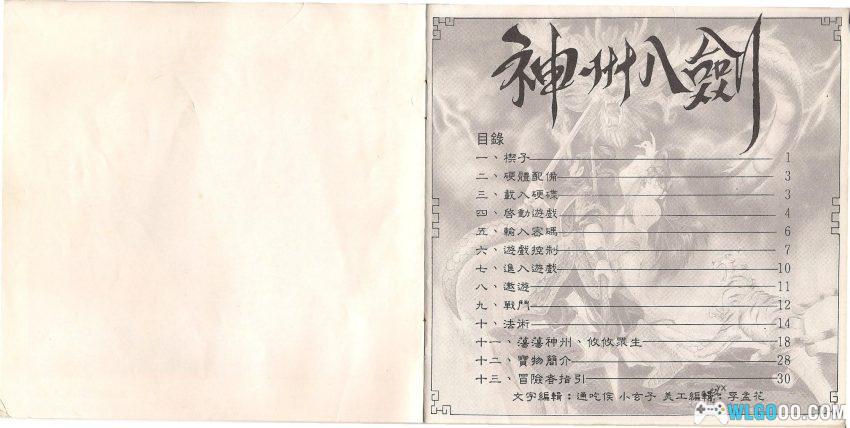 神州八劍
目錄
一、楔子 1
二、硬體配備 3
三、載入硬碟 3
四、啓動遊戲 4
五、輸入密碼 6
六、遊戲控制 7
七、進入遊戲 10
八、遨遊 11
九、戰鬥 12
十、法術 14
十一、蕩蕩神州、攸攸眾生 18
十二、寶物簡介 28
十三、冒險者指引 30
文字編輯：通吃侯 小玄子 美工編輯：李孟花
WLGOOO.COM